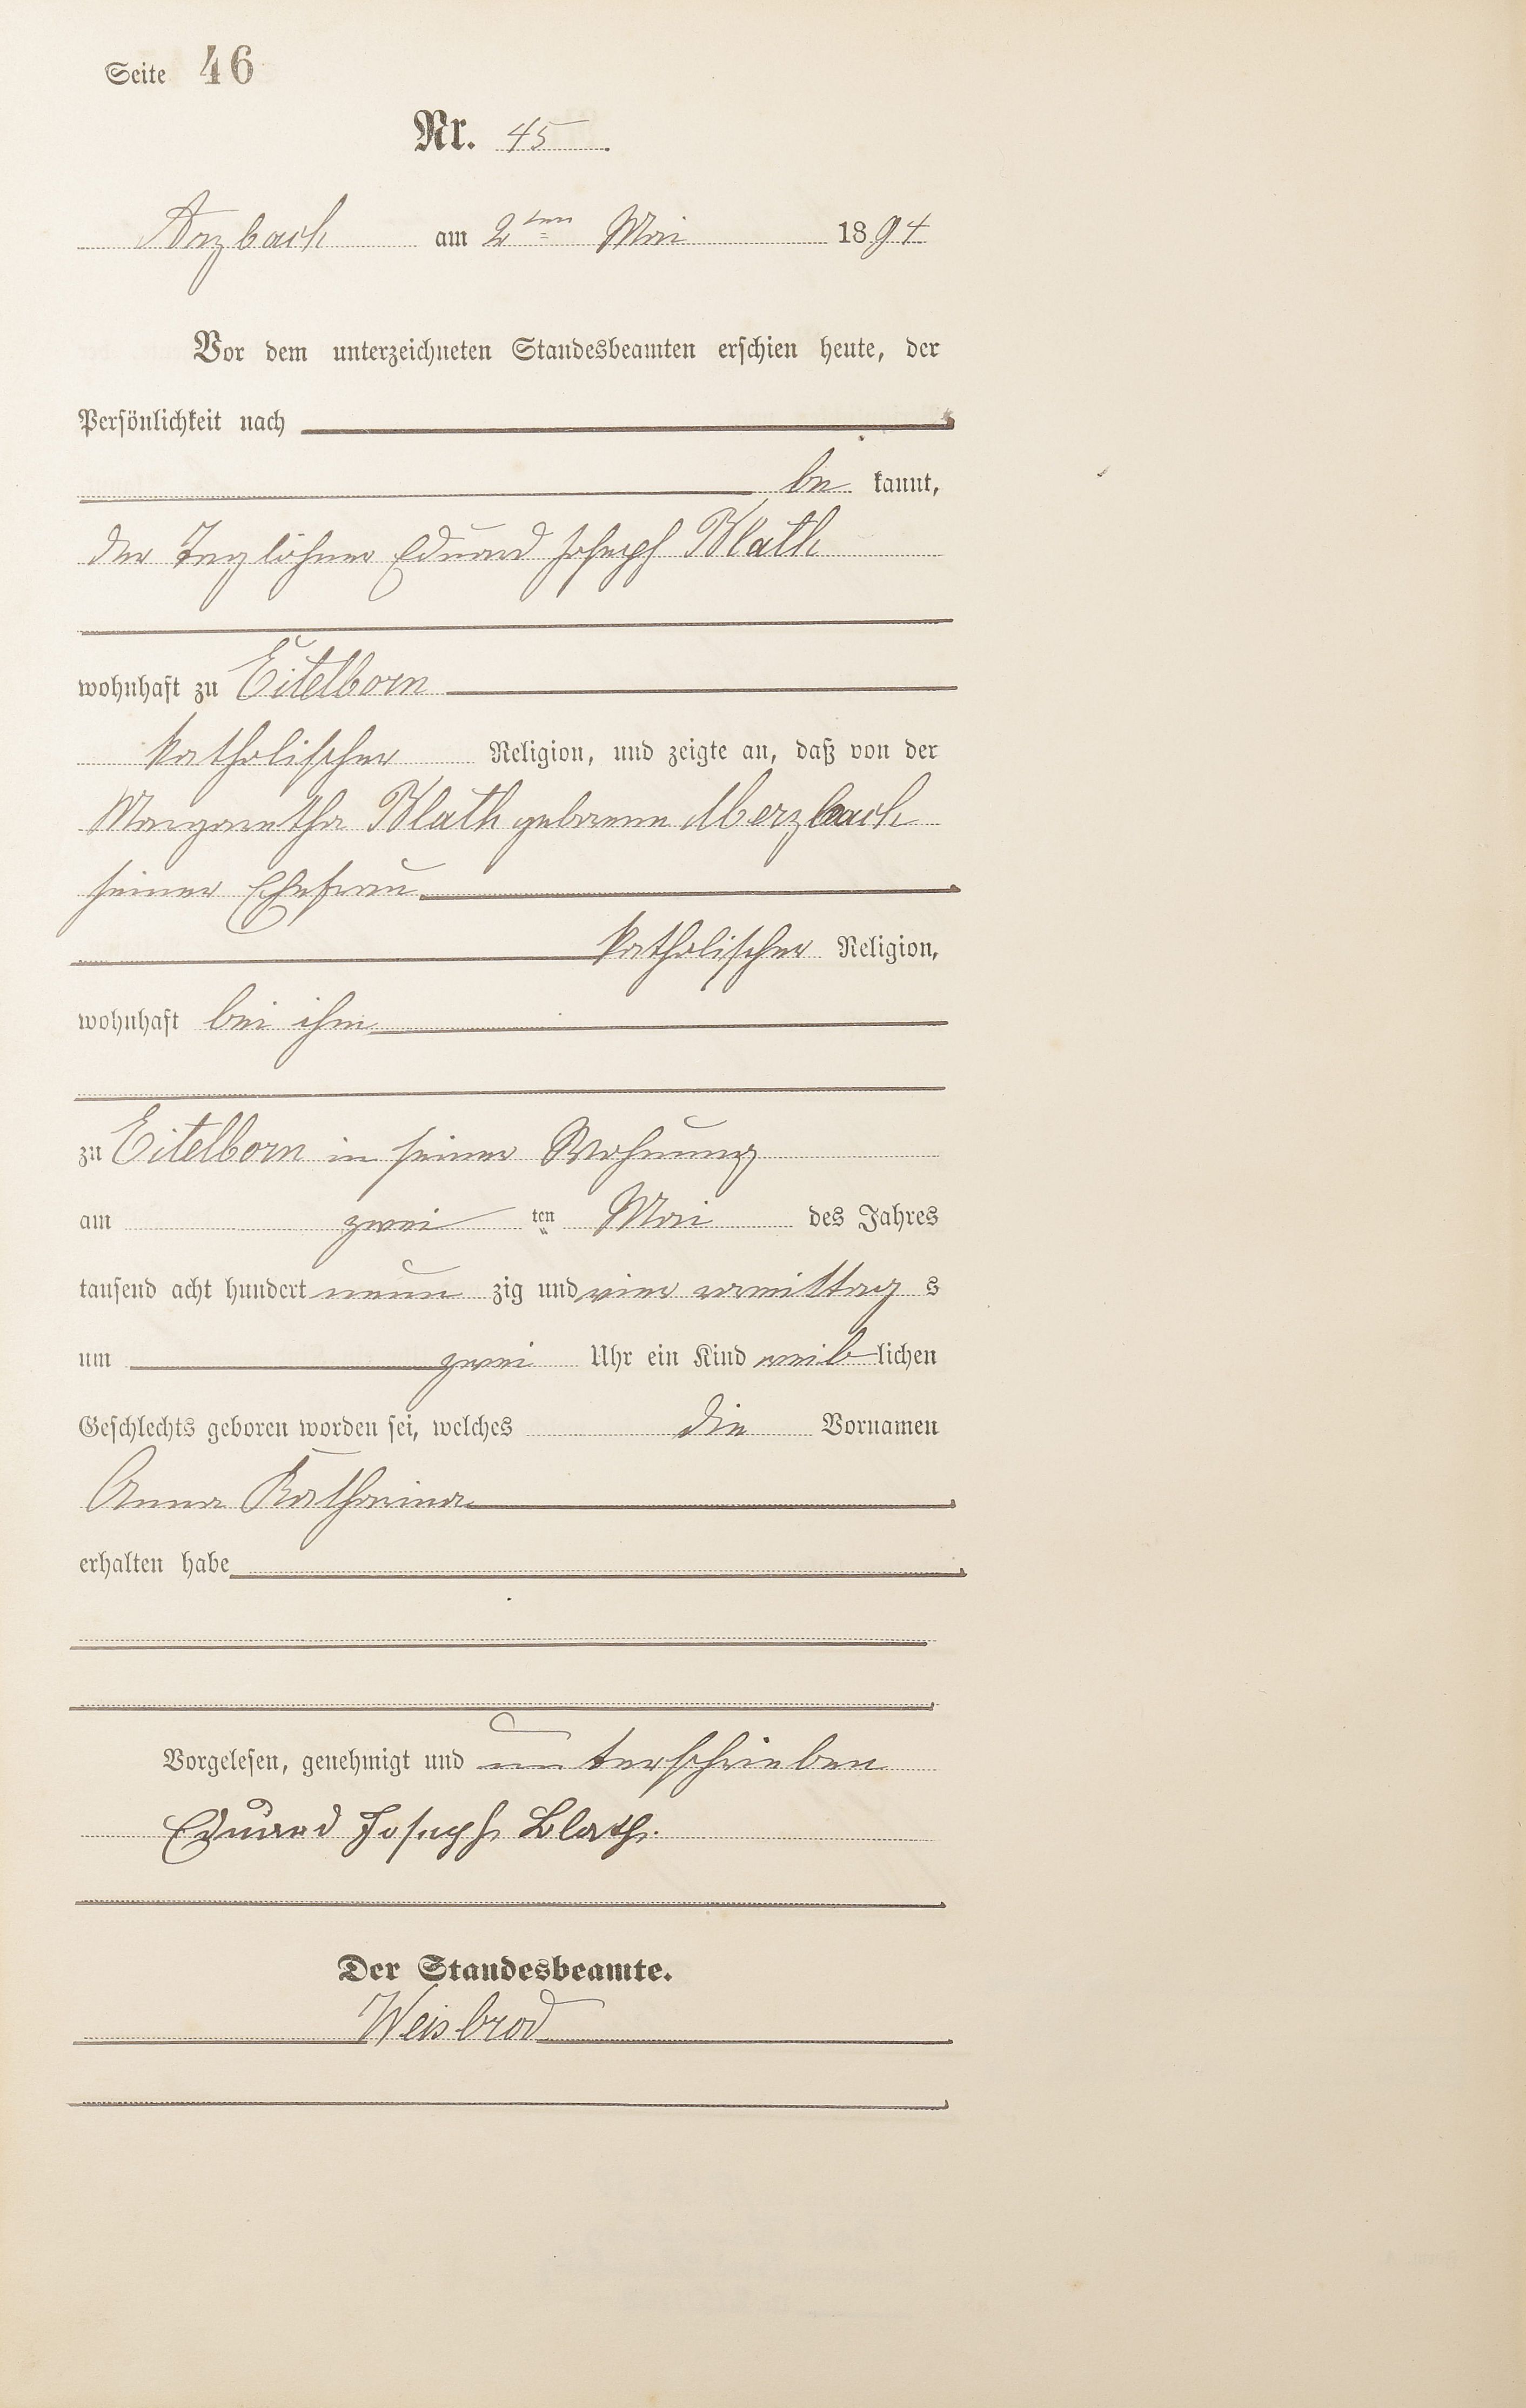 Seite 46
Nr. 45
Arzbach am 2ten Mai 1894
Vor dem unterzeichneten Standesbeamten erschien heute, der
Persönlichkeit nach
be kannt,
der Taglöhner Eduard Joseph Blath
wohnhaft zu Eitelborn
katholischer Religion, und zeigte an, daß von der
Margaretha Blath geborene Merzbach
seiner Ehefrau
katholischer Religion,
wohnhaft bei ihm
zu Eitelborn in seiner Wohnung
am zwei ten Mai des Jahres
tausend acht hundert neun zig und vier vormittag s
um zwei Uhr ein Kind weiblichen
Geschlechts geboren worden sei, welches die Vornamen
Anna Katharina
erhalten habe
Vorgelesen, genehmigt und unterschrieben
Eduard Joseph Blath.
Der Standesbeamte.
Weisbrod